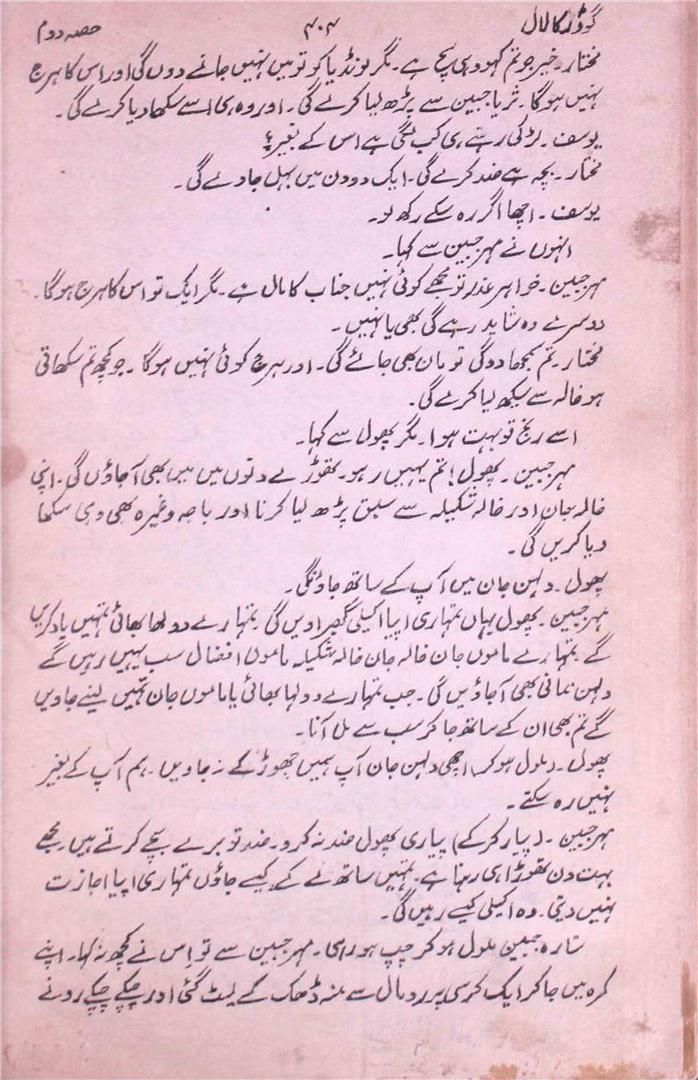 گودڑ کا لال ۴۰۴ حصہ دوم
مختار۔ خیر جو تم کہو وہی سچ ہے۔ مگر لونڈیا کو تو میں نہیں جانے دوں گی اور اس کا ہرج
نہیں ہوگا۔ ثریا جبین سے پڑھ لیا کرے گی۔ اور وہ ہی اسے سکھا دیا کرے گی۔
یوسف۔ لڑکی رہنے ہی کب لگی ہے اس کے بغیر؟
مختار۔ بچہ ہے ضد کرے گی۔ ایک دو دن میں بہل جاوے گی۔
یوسف۔ اچھا اگر رہ سکے رکھ لو۔
انہوں نے مہرجبین سے کہا۔
مہرجبین۔ خواہر عذر تو مجھے کوئی نہیں جناب کا مال ہے۔ مگر ایک تو اس کا ہرج ہوگا۔
دوسرے وہ شاید رہے گی بھی یا نہیں۔
مختار۔ تم سمجھا دوگی تو مان بھی جائے گی۔ اور ہرج کوئی نہیں ہوگا۔ جو کچھ تم سکھاتی
ہو خالہ سے سیکھ لیا کرے گی۔
اسے رنج تو بہت ہوا۔ مگر پھول سے کہا۔
مہرجبین۔ پھول! تم یہیں رہو۔ تھوڑے دنوں میں میں بھی آ جاؤں گی۔ اپنی
خالہ جان اور خالہ شکیلہ سے سبق پڑھ لیا کرنا اور باجہ وغیرہ بھی وہی سکھا
دیا کریں گی۔
پھول۔ دلہن جان میں آپ کے ساتھ جاؤنگی۔
مہرجبین۔ پھول یہاں تمہاری اپیا اکیلی گھبراویں گی۔ تمہارے دولھا بھائی تمہیں یاد کریں
گے۔ تمہارے ماموں جان خالہ جان خالہ شکیلہ ماموں افضال سب یہیں رہیں گے
دلہن نمانی بھی آ جاؤیں گی۔ جب تمہارے دولہا بھائی یا ماموں جان ہمیں لینے جاویں
گے تم بھی ان کے ساتھ جا کر سب سے مل آنا۔
پھول۔ (ملول ہو کر) اچھی دلہن جان آپ ہمیں چھوڑ کے نہ جاویں۔ ہم آپ کے بغیر
نہیں رہ سکتے۔
مہرجبین۔ (پیار کر کے) پیاری پھول ضد نہ کرو۔ ضد تو برے بچے کرتے ہیں۔ مجھے
بہت دن تھوڑا ہی رہنا ہے۔ تمہیں ساتھ لے کے کیسے جاؤں تمہاری اپیا اجازت
نہیں دیتی۔ وہ اکیلی کیسے رہیں گی۔
سارہ جبین ملول ہو کر چپ ہو رہی۔ مہرجبین سے تو اس نے کچھ نہ کہا۔ اپنے
کمرہ میں جا کر ایک کرسی پر رومال سے منہ ڈھک کے لیٹ گئی اور چپکے چپکے رونے